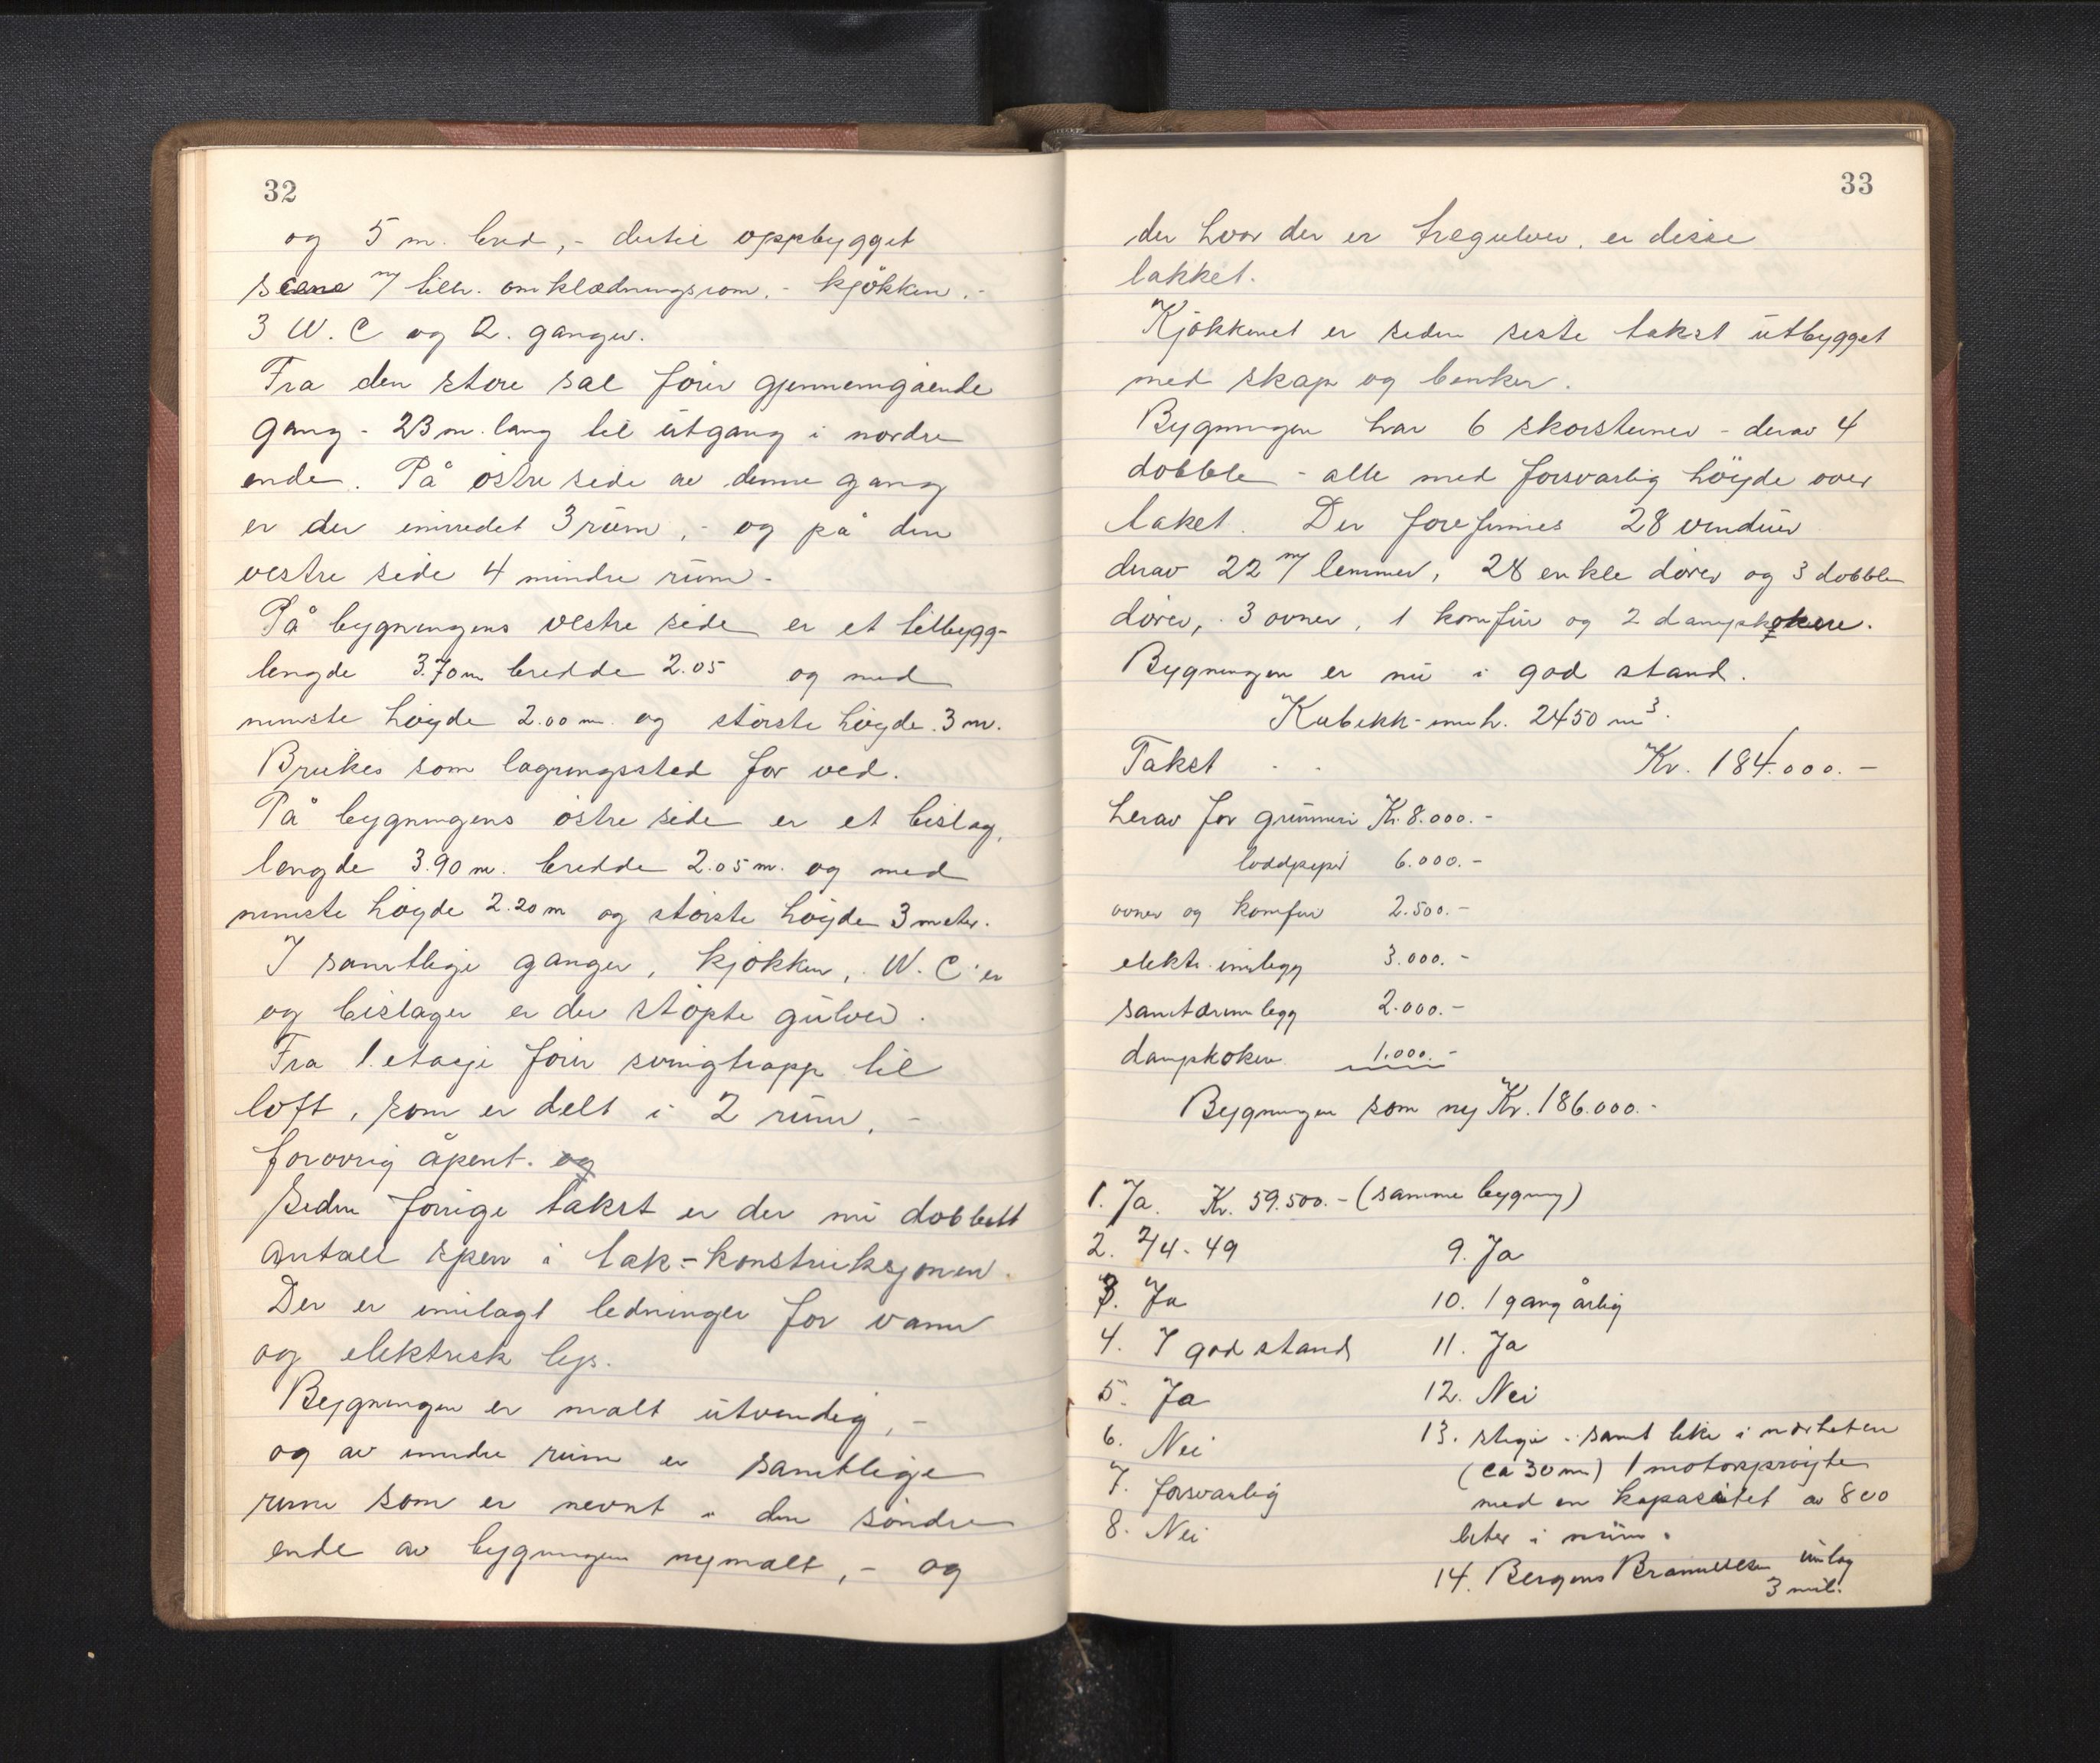 32
og 5 m. bred, - dertil oppbygget
scene m/ tilh. omklædningsrom, - kjøkken, -
3 W.C og 2. ganger.
Fra den store sal fører gjennemgående
gang - 23 m. lang til utgang i nordre
ende. På østre side av denne gang
er der innredet 3 rum, - og på den
vestre side 4 mindre rum -
På bygningens vestre side er et tilbygg-
lengde 3.70 m bredde 2.05 og med
minste høyde 2.00 m. og største høyde 3 m.
Brukes som lagringssted for ved.
På bygningens østre side er et bislag,
lengde 3.90 m. bredde 2.05 m. og med
minste høyde 2.20 m og største høyde 3 meter.
I samtlige ganger, kjøkken, W.C'er
og bislager er der støpte gulver.
Fra 1. etasje fører svingtrapp til
loft, som er delt i 2 rum, -
forøvrig åpent. og
Siden forrige takst er der nu dobbelt
antall sperr i tak-konstruksjonen.
Der er innlagt ledninger for vann
og elektrisk lys.
Bygningen er malt utvendig, -
og av indre rum er samtlige
rum som er nevnt i den søndre
ende av bygningen nymalt, - og
33
der hvor der er tregulver, er disse
lakket.
Kjøkkenet er siden siste takst utbygget
med skap og benker.
Bygningen har 6 skorstener - derav 4
dobble - alle med forsvarlig höyde over
taket. Der forefinnes 28 vinduer
derav 22 m/ lemmer, 28 enkle dører og 3 dobble
dører, 3 ovner, 1 komfur og 2 dampkokere.
Bygningen er nu i god stand.
Kubikk-innh. 2450 m³.
Takst - - Kr. 184.000.-
herav for grunnmur Kr. 8.000.-
loddpipr 6.000.-
ovner og komfur 2.500.-
elektr. innlegg 3.000.-
sanitærinnlegg 2.000.-
dampkoker 1.000.-
Bygningen som ny Kr. 186.000.-
1. Ja. Kr. 59.500.- (samme bygning)
2. 2/4-49
3. Ja
4. I god stand
5. Ja
6. Nei
7. forsvarlig
8. Nei
9. Ja
10. 1 gang årlig
11. Ja
12. Nei
13. stige - samt like i nærheten
(ca 30 m) 1 motorsprøyte
med en kapasitet av 800
liter i min.
14. Bergens Brannvesen innlag
3 mil.